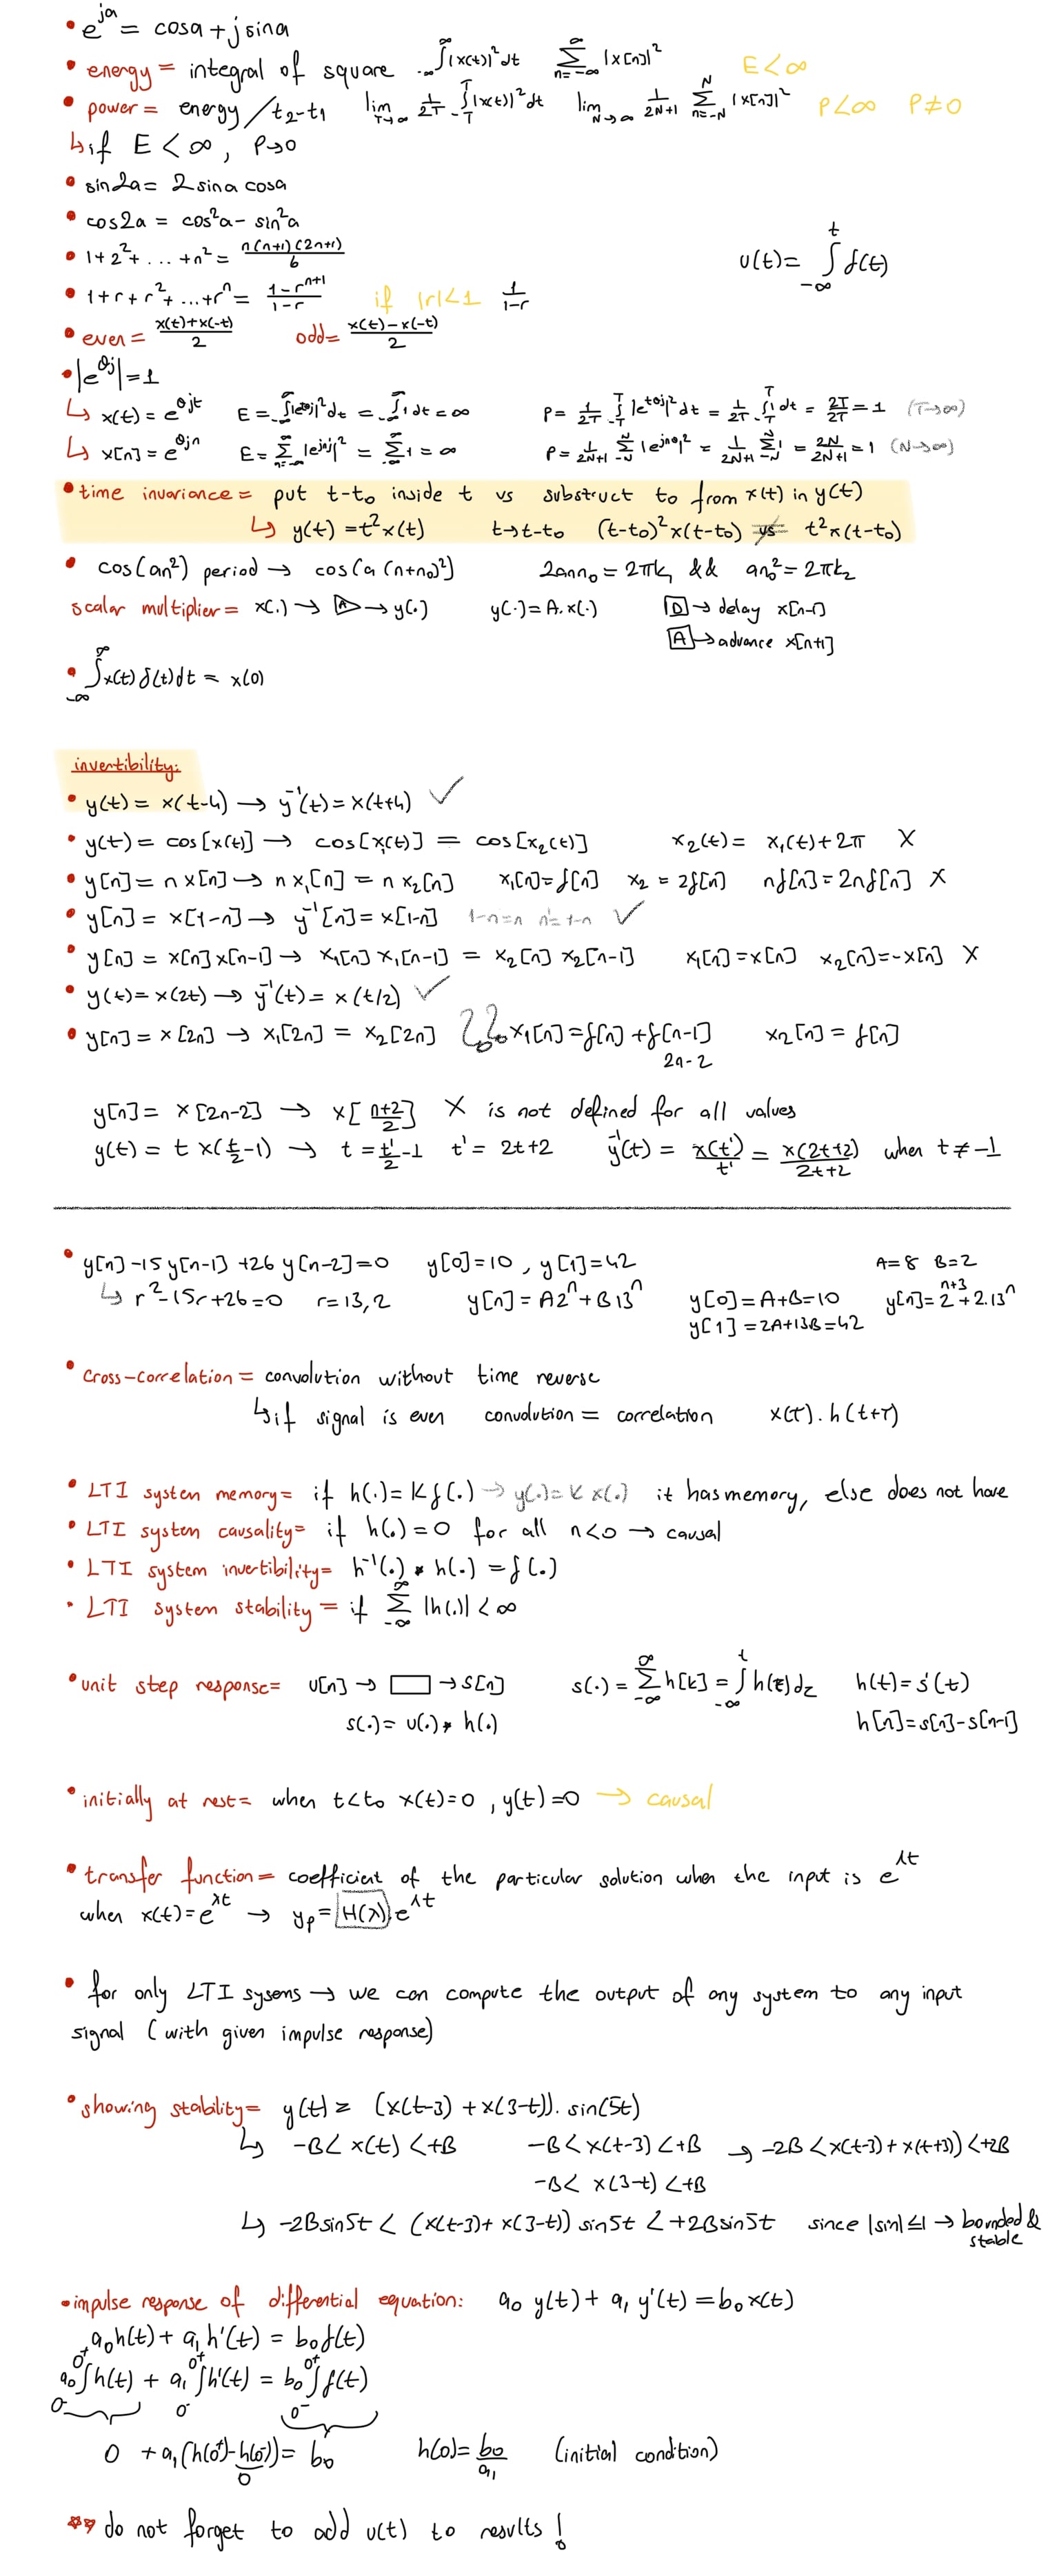 • e^{ja} = cosa + jsina
• energy = integral of square ₋∞∫^∞ |x(t)|² dt ∑_{n=-∞}^{∞} |x[n]|² E < ∞
• power = energy / t₂-t₁ lim_{T→∞} 1/2T ∫_{-T}^{T} |x(t)|² dt lim_{N→∞} 1/2N+1 ∑_{n=-N}^{N} |x[n]|² P<∞ P≠0
↳ if E < ∞, P→0
• sin2a = 2 sina cosa
• cos2a = cos²a - sin²a
• 1+2²+...+n² = n(n+1)(2n+1)/6 u(t) = ∫_{-∞}^{t} f(t)
• 1+r+r²+...+rⁿ = 1-r^{n+1}/1-r if |r|<1 1/1-r
• even = x(t)+x(-t)/2 odd = x(t)-x(-t)/2
• |e^{θj}| = 1
↳ x(t) = e^{θjt} E = ∫_{-∞}^{∞} |e^{tθj}|² dt = ∫_{-∞}^{∞} 1 dt = ∞ P = 1/2T ∫_{-T}^{T} |e^{tθj}|² dt = 1/2T ∫_{-T}^{T} 1 dt = 2T/2T = 1 (T→∞)
↳ x[n] = e^{θjn} E = ∑_{n=-∞}^{∞} |e^{jnj}|² = ∑_{-∞}^{∞} 1 = ∞ P = 1/2N+1 ∑_{-N}^{N} |e^{jnθ}|² = 1/2N+1 ∑_{-N}^{N} 1 = 2N/2N+1 = 1 (N→∞)
• time invariance = put t-t₀ inside t vs substruct to from x(t) in y(t)
↳ y(t) = t²x(t) t→t-t₀ (t-t₀)²x(t-t₀) ≠ t²x(t-t₀)
• cos(an²) period → cos(a(n+n₀)²) 2ann₀ = 2πk₁ && an₀² = 2πk₂
scalar multiplier = x(.) → A → y(.) y(.) = A.x(.) D → delay x[n-1]
A → advance x[n+1]
• ∫_{-∞}^{∞} x(t)δ(t)dt = x(0)
invertibility:
• y(t) = x(t-4) → y⁻¹(t) = x(t+4) ✓
• y(t) = cos[x(t)] → cos[x₁(t)] = cos[x₂(t)] x₂(t) = x₁(t)+2π X
• y[n] = n x[n] → n x₁[n] = n x₂[n] x₁[n] = f[n] x₂ = 2f[n] nf[n] = 2nf[n] X
• y[n] = x[1-n] → y⁻¹[n] = x[1-n] 1-n=n n'=1-n ✓
• y[n] = x[n]x[n-1] → x₁[n] x₁[n-1] = x₂[n] x₂[n-1] x₁[n] = x[n] x₂[n] = -x[n] X
• y(t) = x(2t) → y⁻¹(t) = x(t/2) ✓
• y[n] = x[2n] → x₁[2n] = x₂[2n] ?? x₁[n] = f[n] + f[n-1] x₂[n] = f[n]
2n-2
y[n] = x[2n-2] → x[n+2/2] X is not defined for all values
y(t) = t x(t/2-1) → t = t'/2-1 t' = 2t+2 y⁻¹(t) = x(t')/t' = x(2t+2)/2t+2 when t≠-1
• y[n]-15y[n-1]+26y[n-2]=0 y[0]=10, y[1]=42 A=8 B=2
↳ r²-15r+26=0 r=13,2 y[n] = A2ⁿ+B13ⁿ y[0]=A+B=10 y[n]=2^{n+3}+2.13ⁿ
y[1]=2A+13B=42
• cross-correlation = convolution without time reverse
↳ if signal is even convolution = correlation x(τ).h(t+τ)
• LTI system memory = if h(.) = Kf(.) → y(.)=K x(.) it has memory, else does not have
• LTI system causality = if h(.) = 0 for all n<0 → causal
• LTI system invertibility = h⁻¹(.) * h(.) = f(.)
• LTI system stability = if ∑_{-∞}^{∞} |h(.)| < ∞
• unit step response = u[n] → ▭ → s[n] s(.) = ∑_{-∞}^{∞} h[k] = ∫_{-∞}^{t} h(τ)dτ h(t) = s'(t)
s(.) = u(.) * h(.) h[n] = s[n]-s[n-1]
• initially at rest = when t<t₀ x(t)=0, y(t)=0 → causal
• transfer function = coefficient of the particular solution when the input is e^{λt}
when x(t)=e^{λt} → yp = H(λ) e^{λt}
• for only LTI sysems → we can compute the output of any system to any input
signal (with given impulse response)
• showing stability = y(t) = (x(t-3) + x(3-t)). sin(5t)
↳ -B< x(t) <+B -B<x(t-3)<+B → -2B<x(t-3)+x(t+3))<+2B
-B< x(3-t) <+B
↳ -2Bsin5t < (x(t-3)+ x(3-t)) sin5t < +2Bsin5t since |sin|≤1 → bounded &
stable
• impulse response of differential equation: a₀ y(t) + a₁ y'(t) = b₀x(t)
a₀h(t) + a₁h'(t) = b₀f(t)
a₀∫_{0⁻}^{0⁺} h(t) + a₁∫_{0⁻}^{0⁺} h'(t) = b₀∫_{0⁻}^{0⁺} f(t)
0 + a₁(h(0⁺)-h(0⁻)) = b₀ h(0) = b₀/a₁ (initial condition)
0
** do not forget to add u(t) to results!